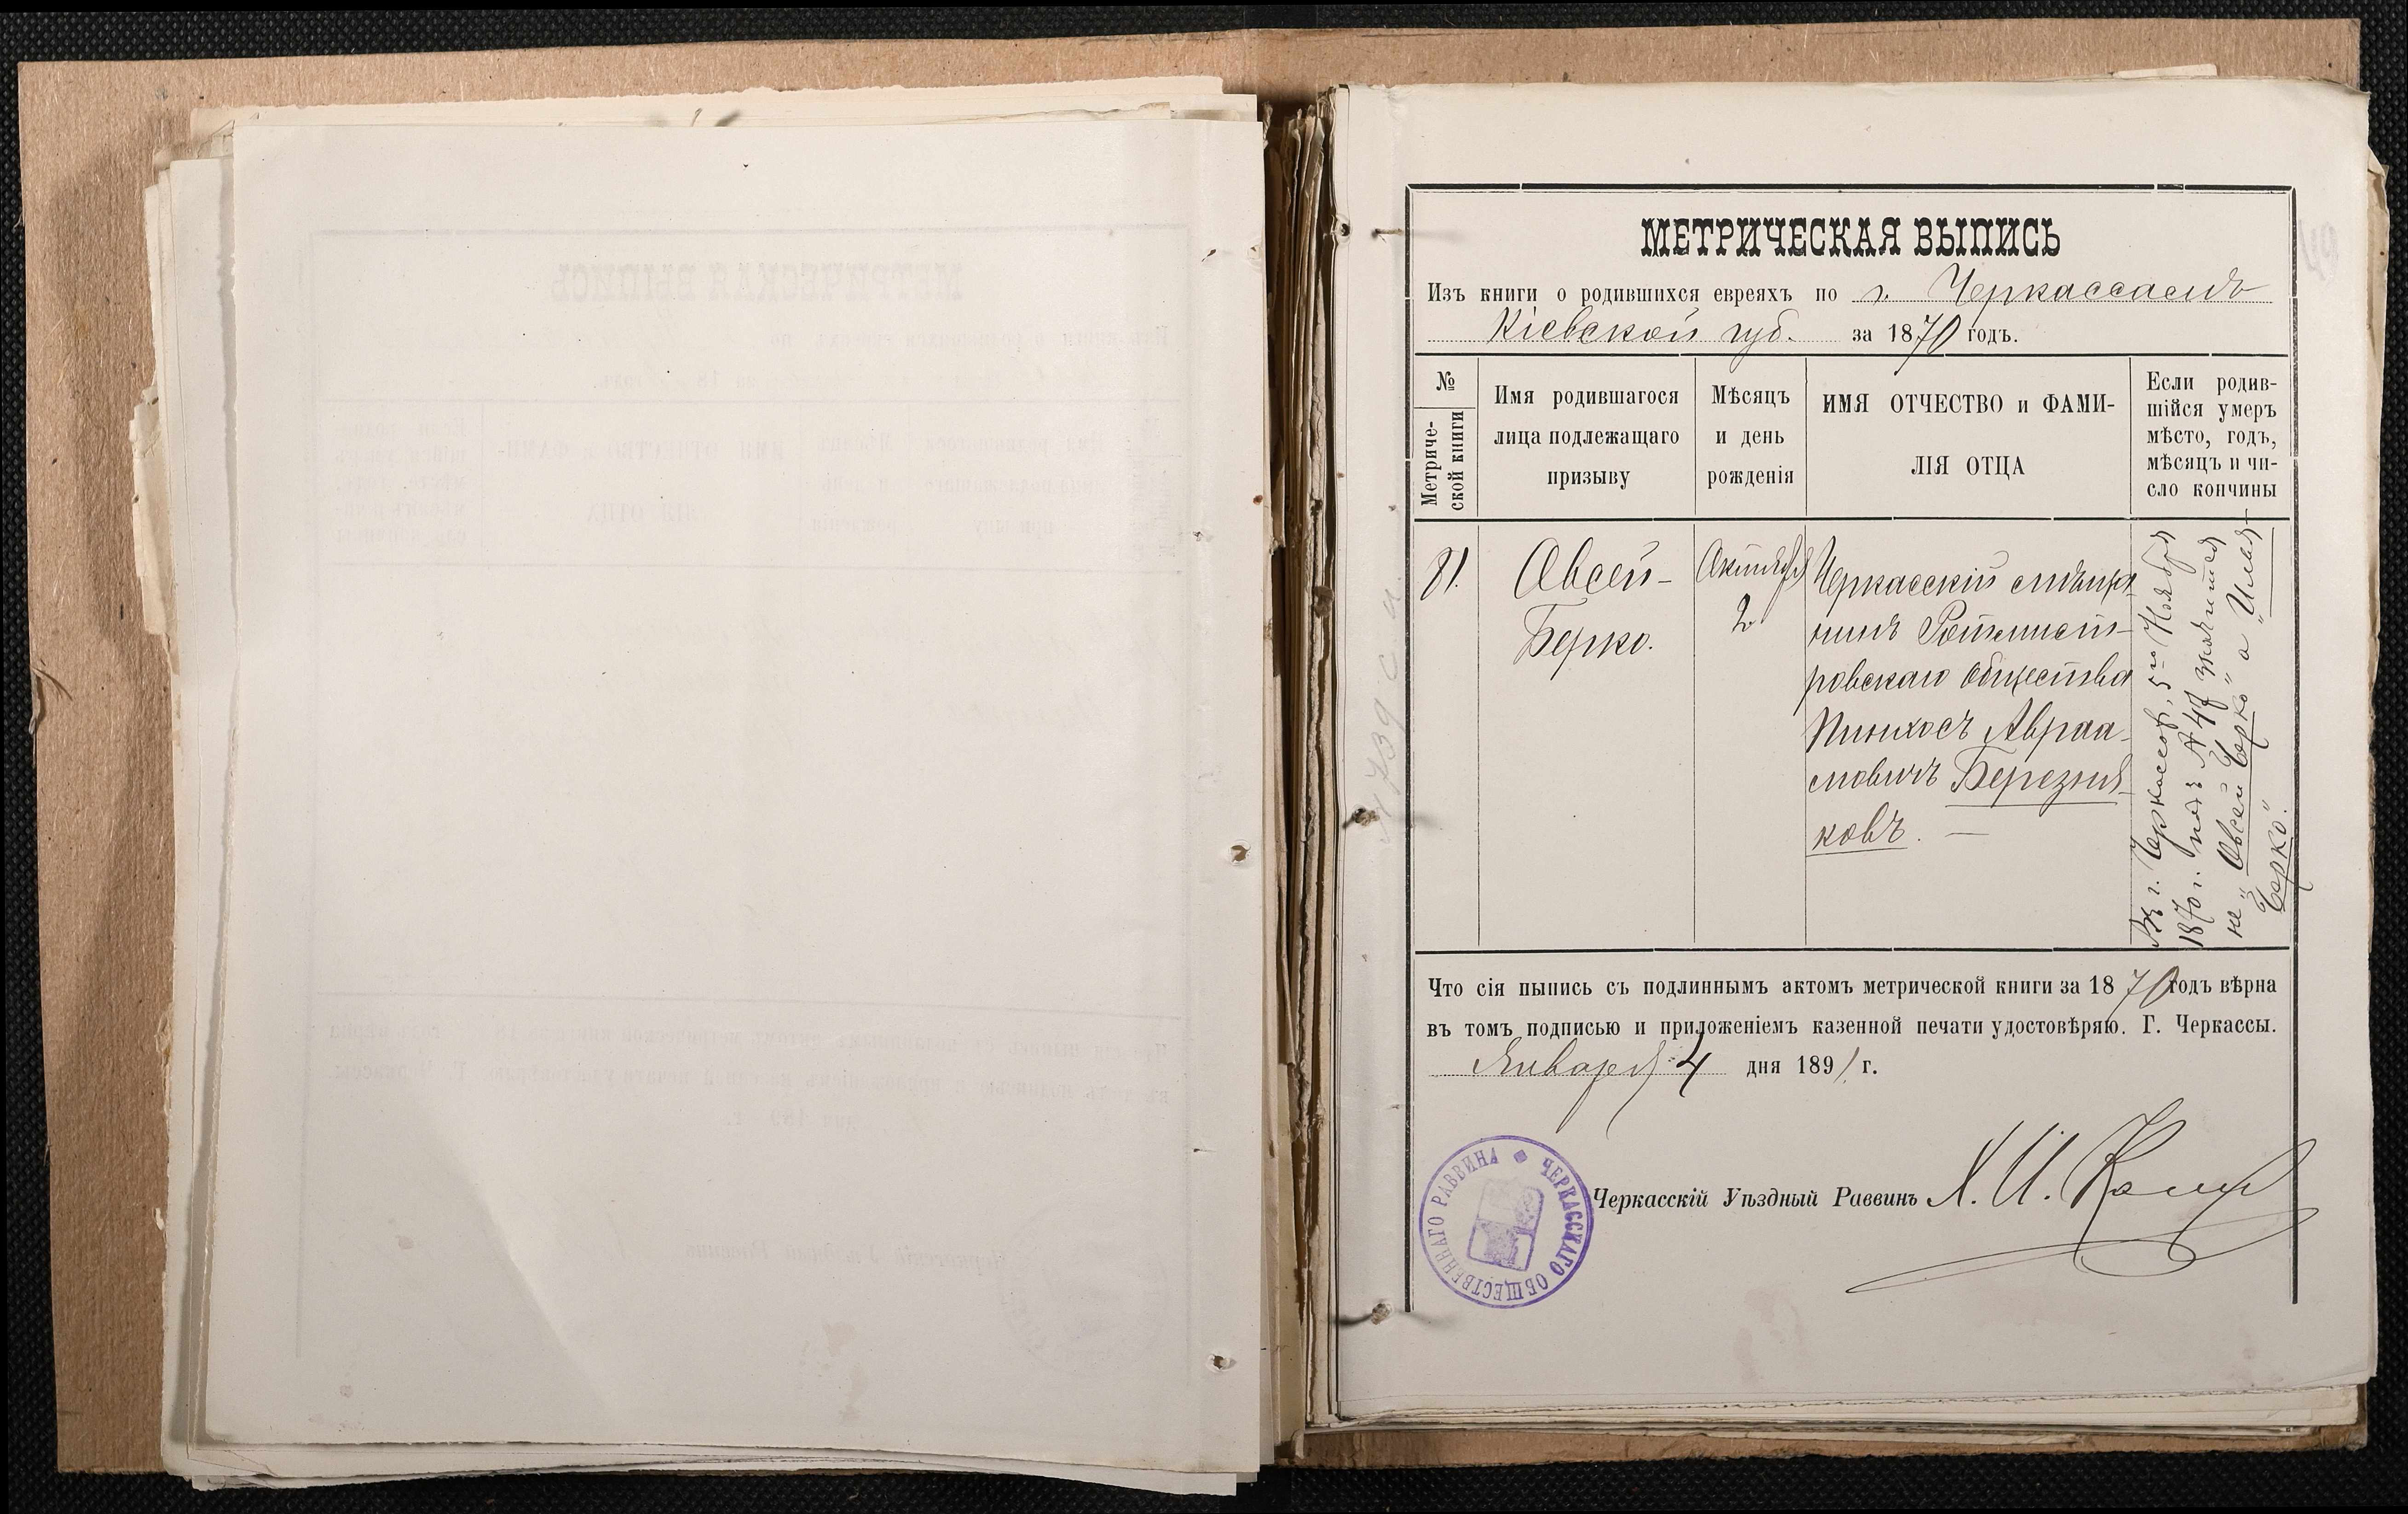 МЕТРИЧЕСКАЯ ВЫПИСЬ
Изъ книги о родившихся евреяхъ по г. Черкассамъ
Кіевской губ. за 1870 годъ.
№
Метриче-
ской книги
Имя родившагося
лица подлежащаго
призыву
Мѣсяцъ
и день
рожденія
ИМЯ ОТЧЕСТВО и ФАМИ-
ЛІЯ ОТЦА
Если родив-
шійся умеръ
мѣсто, годъ,
мѣсяцъ и чи-
сло кончины
81.
Овсей-
Берко.
Октября
2
Черкасскій мѣща-
нинъ Ротмист-
ровскаго общества
Пинхосъ Авраа-
мовичъ Березня-
ковъ. —
Въ г. Черкассах, 5-го Ноября
1870 г. подъ № 48 значится
не „Овсей Берко" а „Илья-
Берко".
Что сія выпись съ подлиннымъ актомъ метрической книги за 1870 годъ вѣрна
въ томъ подписью и приложеніемъ казенной печати удостовѣряю. Г. Черкассы.
Января 4 дня 1891 г.
Черкасскій Уѣздный Раввинъ Х. И.
ЧЕРКАССКАГО ОБЩЕСТВЕННАГО РАВВИНА